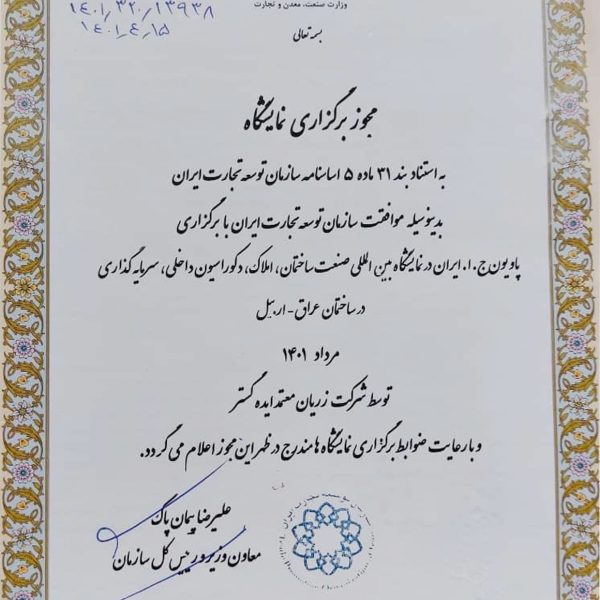 وزارت صنعت، معدن و تجارت
۱۴۰۱/۳۲۰/۱۳۹۳۸
۱۴۰۱/۴/۱۵
بسمه تعالی
مجوز برگزاری نمایشگاه
به استناد بند ۳۱ ماده ۵ اساسنامه سازمان توسعه تجارت ایران
بدینوسیله موافقت سازمان توسعه تجارت ایران با برگزاری
پاویون ج.ا.ایران در نمایشگاه بین المللی صنعت ساختمان، املاک، دکوراسیون داخلی، سرمایه گذاری
در ساختمان عراق - اربیل
مرداد ۱۴۰۱
توسط شرکت زریان معتمد ایده گستر
و با رعایت ضوابط برگزاری نمایشگاه ها مندرج در ظهر این مجوز اعلام می گردد.
علیرضا پیمان پاک
معاون وزیر و رییس کل سازمان